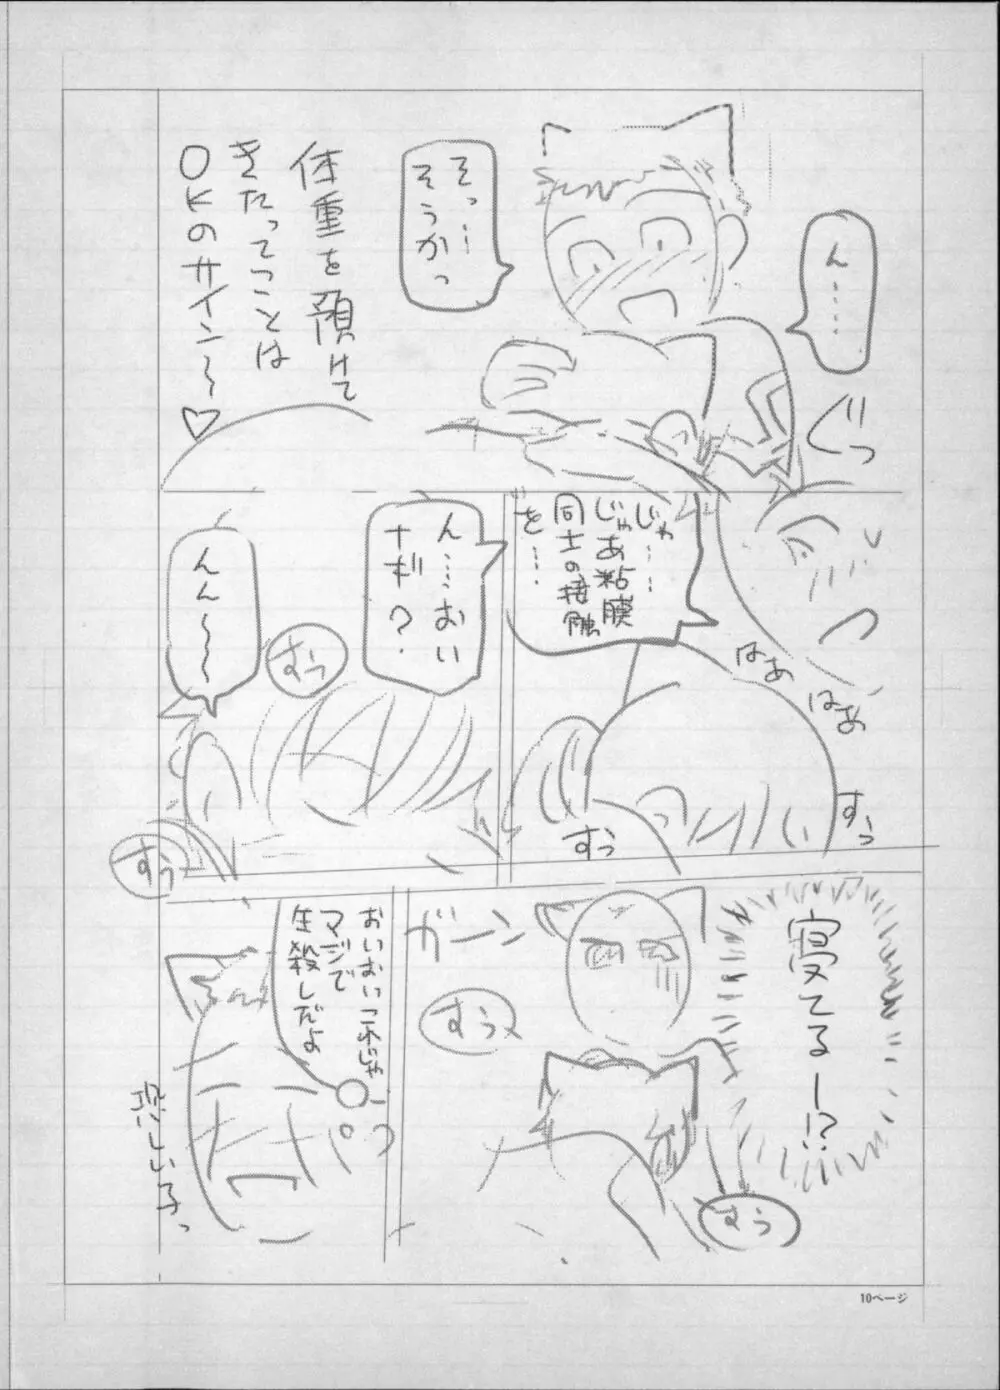 ん……
ぐっ
そっ…
そうかっ
体重を預けて
きたってことは
OKのサイン〜♡
じゃ……
じゃあ粘膜
同士の接触
を…
はあ
はあ
すぅ
すぅ
ん…おい
ナギ？
すぅ
んん〜〜
すぅ
寝てるー!?
すぅ
ガーン
すぅ
おいおいこれじゃ
マジで
生殺しだよ
10ページ